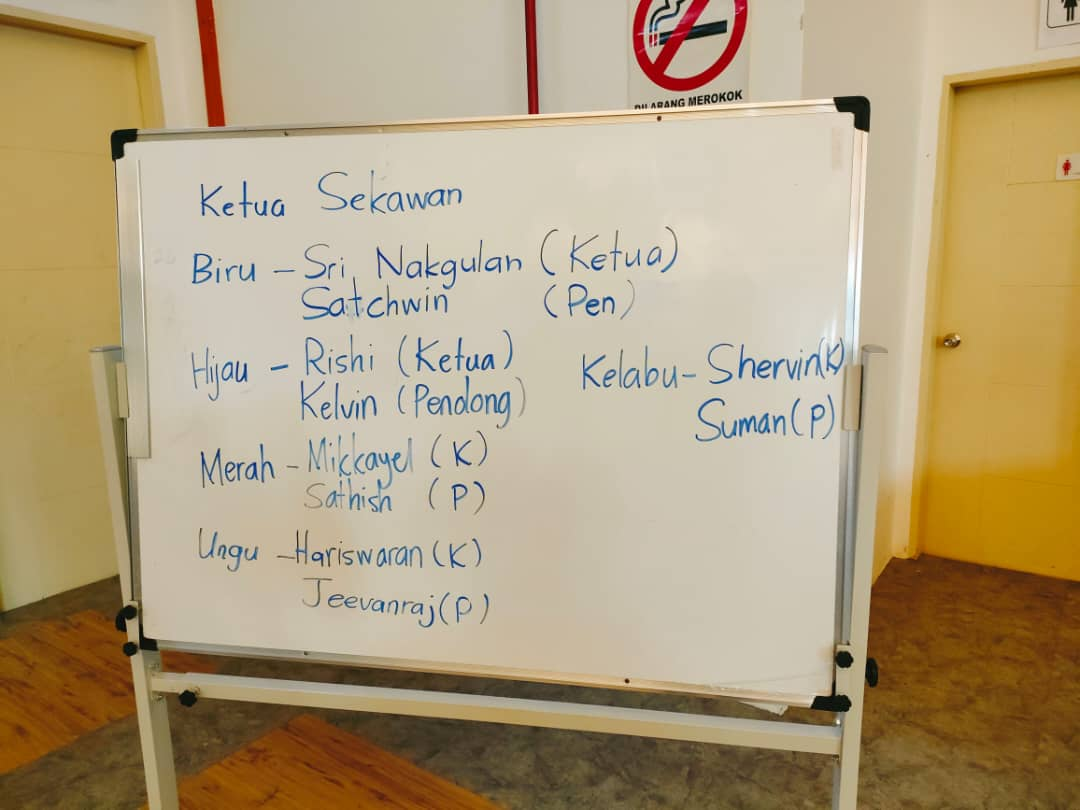 DILARANG MEROKOK
Ketua Sekawan
Biru - Sri Nakgulan (Ketua)
Satchwin (Pen)
Hijau - Rishi (Ketua)
Kelvin (Pendong)
Merah - Mikkayel (K)
Sathish (P)
Ungu - Hariswaran (K)
Jeevanraj (P)
Kelabu - Shervin (K)
Suman (P)